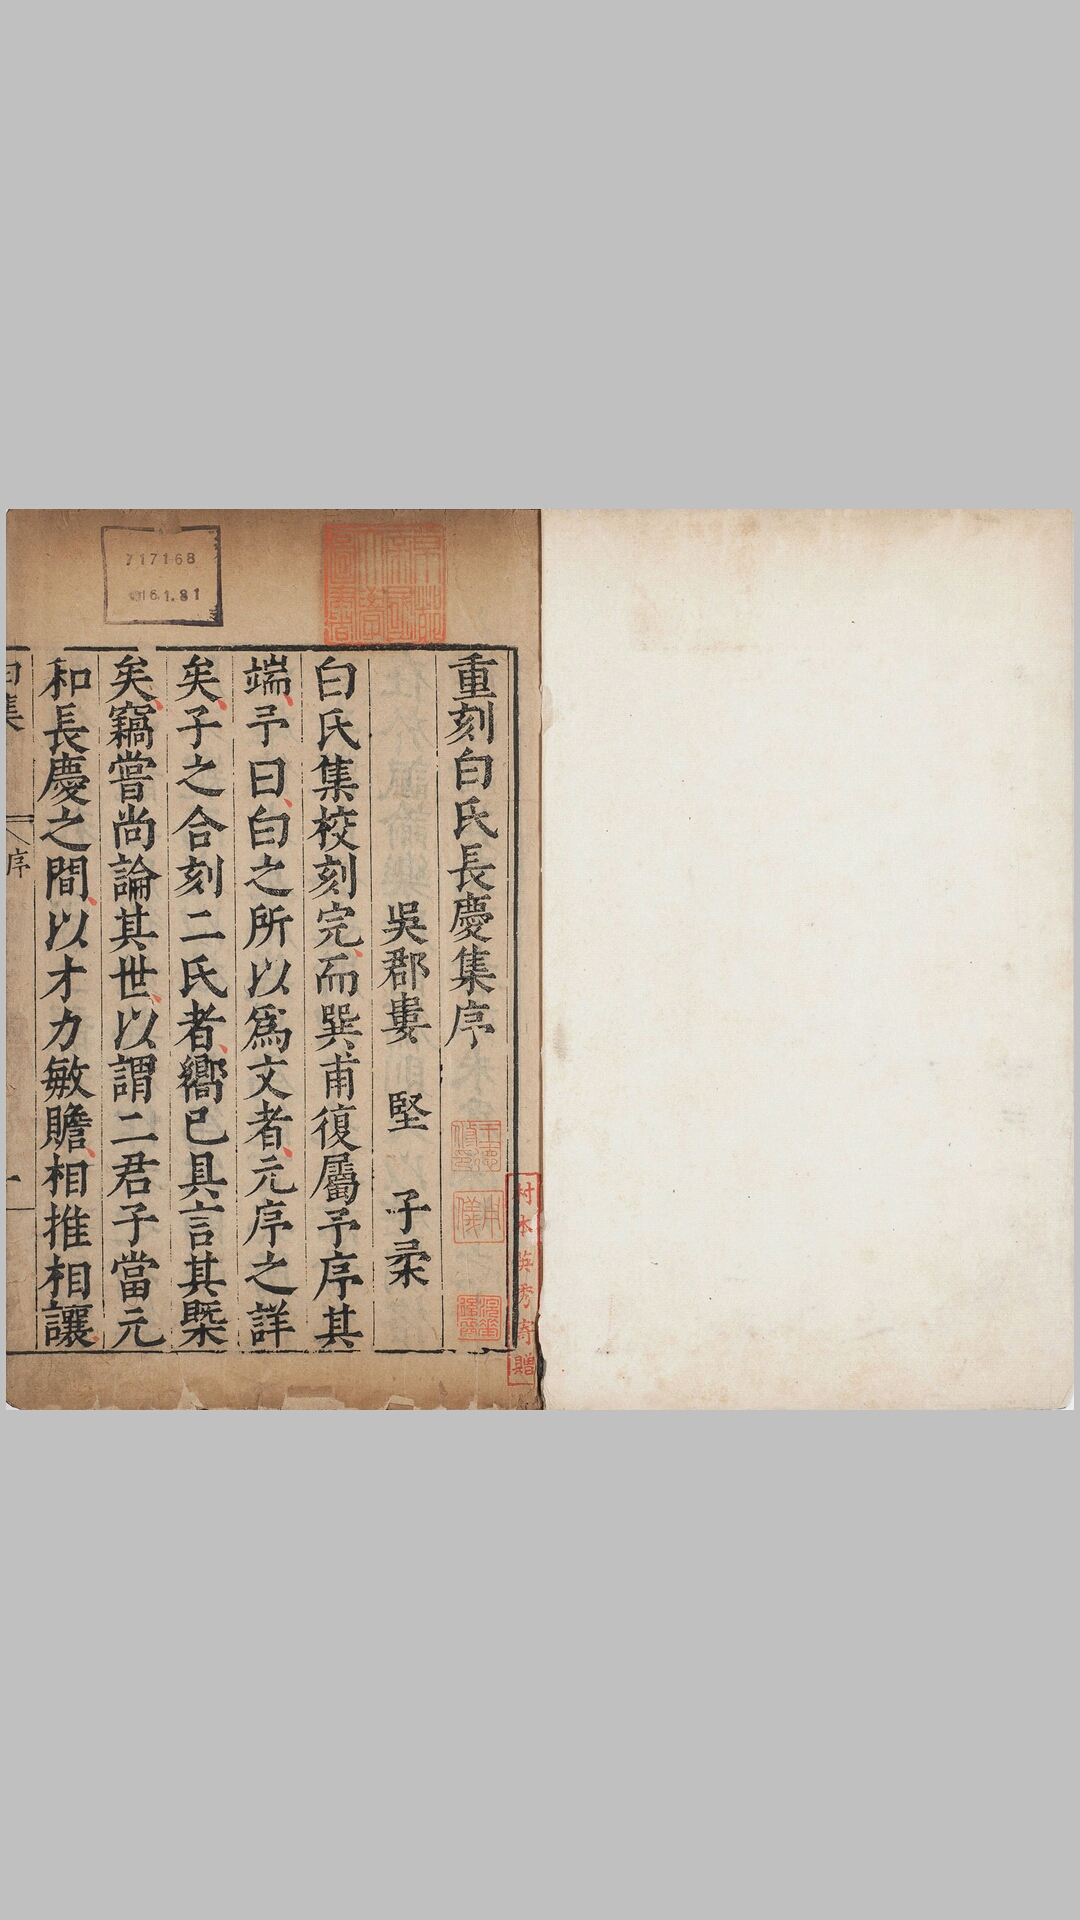 重刻白氏長慶集序
吳郡婁　堅　子柔
白氏集校刻完而巽甫復屬予序其
端予曰白之所以爲文者元序之詳
矣子之合刻二氏者嚮已具言其槩
矣竊嘗尚論其世以謂二君子當元
和長慶之間以才力敏贍相推相讓
白集
序
一
717168
村本英秀寄贈